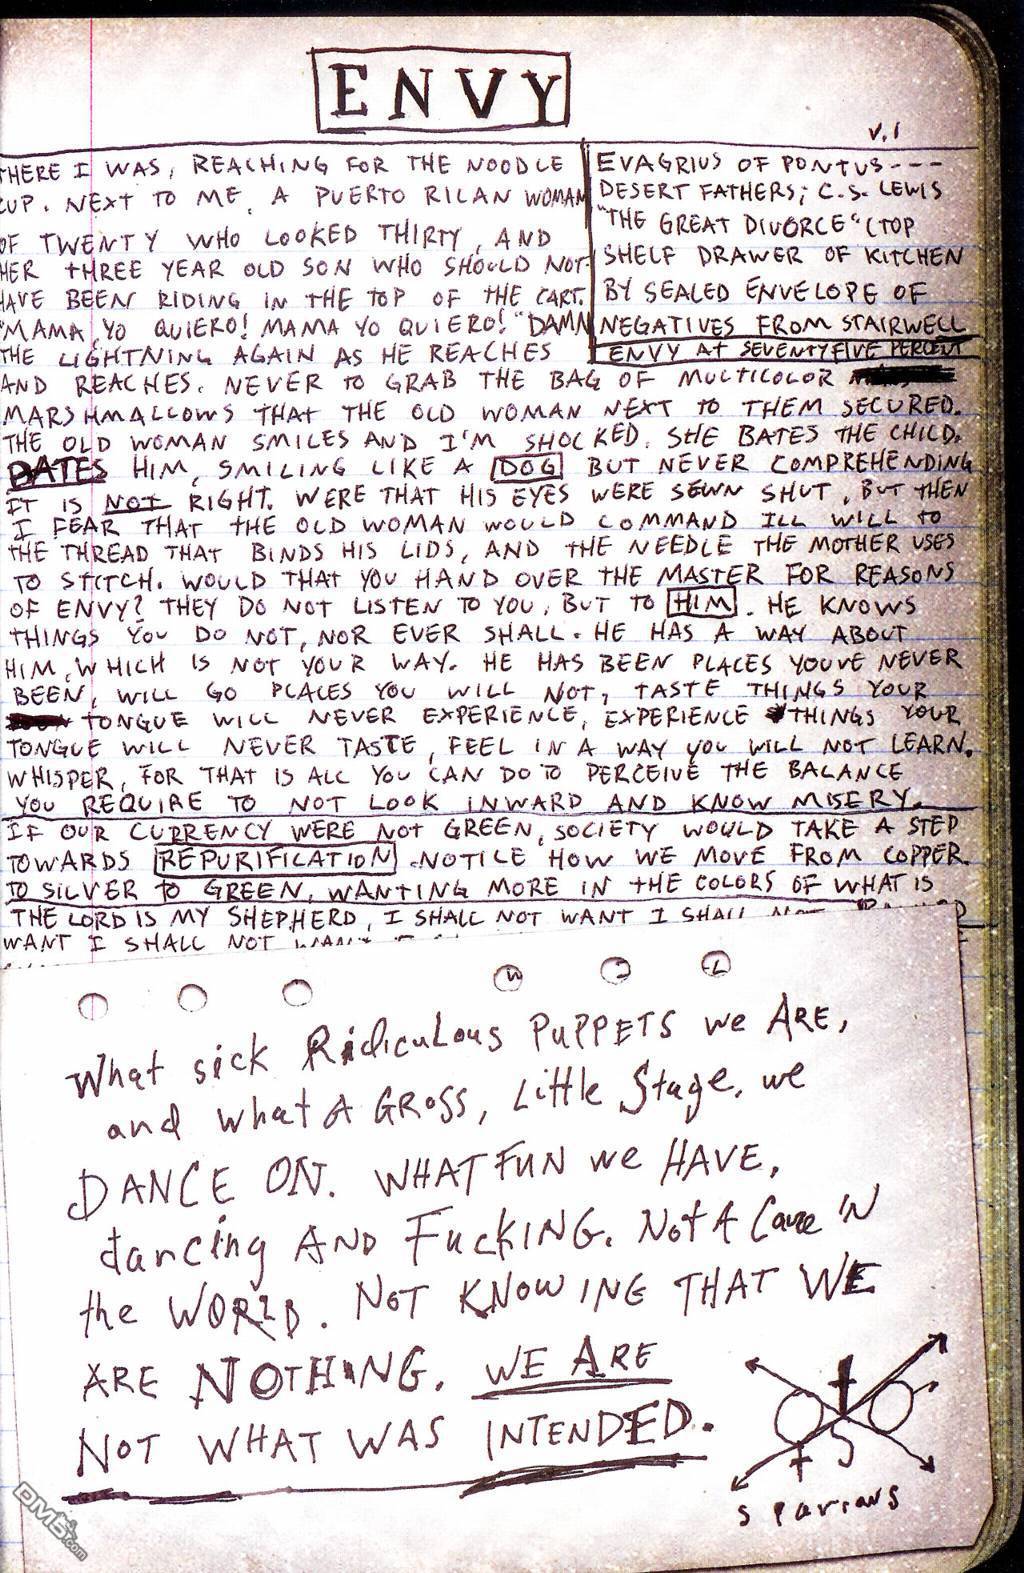 ENVY
v.1
THERE I WAS, REACHING FOR THE NOODLE
CUP. NEXT TO ME, A PUERTO RICAN WOMAN
OF TWENTY WHO LOOKED THIRTY, AND
HER THREE YEAR OLD SON WHO SHOULD NOT
HAVE BEEN RIDING IN THE TOP OF THE CART.
"MAMA, YO QUIERO! MAMA YO QUIERO!" DAMN
THE LIGHTNING AGAIN AS HE REACHES
EVAGRIUS OF PONTUS---
DESERT FATHERS; C.S. LEWIS
"THE GREAT DIVORCE" (TOP
SHELF DRAWER OF KITCHEN
BY SEALED ENVELOPE OF
NEGATIVES FROM STAIRWELL
ENVY AT SEVENTYFIVE PERCENT
AND REACHES. NEVER TO GRAB THE BAG OF MULTICOLOR
MARSHMALLOWS THAT THE OLD WOMAN NEXT TO THEM SECURED.
THE OLD WOMAN SMILES AND I'M SHOCKED. SHE BATES THE CHILD.
BATES HIM, SMILING LIKE A DOG BUT NEVER COMPREHENDING
IT IS NOT RIGHT. WERE THAT HIS EYES WERE SEWN SHUT, BUT THEN
I FEAR THAT THE OLD WOMAN WOULD COMMAND ILL WILL TO
THE THREAD THAT BINDS HIS LIDS, AND THE NEEDLE THE MOTHER USES
TO STITCH. WOULD THAT YOU HAND OVER THE MASTER FOR REASONS
OF ENVY? THEY DO NOT LISTEN TO YOU, BUT TO HIM. HE KNOWS
THINGS YOU DO NOT, NOR EVER SHALL. HE HAS A WAY ABOUT
HIM, WHICH IS NOT YOUR WAY. HE HAS BEEN PLACES YOUVE NEVER
BEEN, WILL GO PLACES YOU WILL NOT, TASTE THINGS YOUR
TONGUE WILL NEVER EXPERIENCE, EXPERIENCE THINGS YOUR
TONGUE WILL NEVER TASTE, FEEL IN A WAY YOU WILL NOT LEARN.
WHISPER, FOR THAT IS ALL YOU CAN DO TO PERCEIVE THE BALANCE
YOU REQUIRE TO NOT LOOK INWARD AND KNOW MISERY.
IF OUR CURRENCY WERE NOT GREEN, SOCIETY WOULD TAKE A STEP
TOWARDS REPURIFICATION. NOTICE HOW WE MOVE FROM COPPER.
TO SILVER TO GREEN, WANTING MORE IN THE COLORS OF WHAT IS
THE LORD IS MY SHEPHERD, I SHALL NOT WANT I SHALL NOT
WANT I SHALL NOT WANT
What sick Ridiculous PUPPETS we ARE,
and what A GROSS, Little Stage, we
DANCE ON. WHAT FUN we HAVE,
dancing AND FucKING. Not A Care 'N
the WORLD. NOT KNOWING THAT WE
ARE NOTHING. WE ARE
NOT WHAT WAS INTENDED.
DMB.com